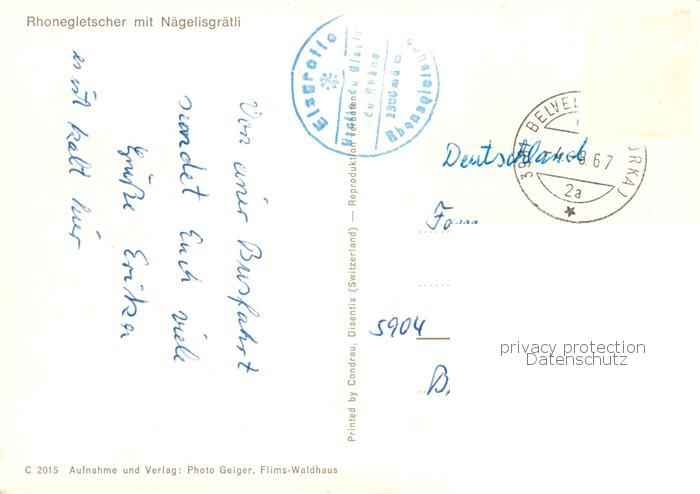 Rhonegletscher mit Nägelisgrätli
Eisgrotte
du Rhône
2300 m ü m
Rhonegletscher
Von einer Busfahrt
sendet Euch viele
Grüße Erika
es ist kalt hier
Printed by Condrau, Disentis (Switzerland) — Reproduktion verboten
BELVE
RKA)
8.67
2a
Deutschland
Fam
5904
B.
privacy protection
Datenschutz
C 2015 Aufnahme und Verlag: Photo Geiger, Flims-Waldhaus